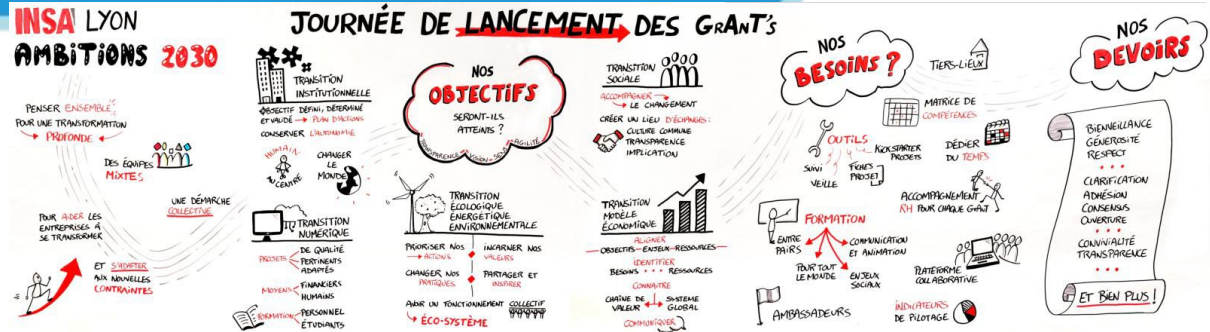 INSA LYON
AMBITIONS 2030
JOURNÉE DE LANCEMENT DES GRANT'S
PENSER ENSEMBLE
POUR UNE TRANSFORMATION
PROFONDE
DES ÉQUIPES
MIXTES
UNE DÉMARCHE
COLLECTIVE
POUR AIDER LES
ENTREPRISES À
SE TRANSFORMER
ET S'ADAPTER
AUX NOUVELLES
CONTRAINTES
TRANSITION
INSTITUTIONNELLE
OBJECTIF DÉFINI, DÉTERMINÉ
ET VALIDÉ → PLAN D'ACTIONS
CONSERVER L'AUTONOMIE
HUMAIN
AU CENTRE
CHANGER
LE
MONDE
TRANSITION
NUMÉRIQUE
PROJETS
DE QUALITÉ
PERTINENTS
ADAPTÉS
MOYENS
FINANCIERS
HUMAINS
FORMATION
PERSONNEL
ÉTUDIANTS
NOS
OBJECTIFS
SERONT-ILS
ATTEINTS ?
TRANSPARENCE VISION SENS AGILITÉ
TRANSITION
ÉCOLOGIQUE
ÉNERGÉTIQUE
ENVIRONNEMENTALE
PRIORISER NOS
ACTIONS
INCARNER NOS
VALEURS
CHANGER NOS
PRATIQUES
PARTAGER ET
INSPIRER
AVOIR UN FONCTIONNEMENT COLLECTIF
ÉCO-SYSTÈME
TRANSITION
SOCIALE
ACCOMPAGNER
LE CHANGEMENT
CRÉER UN LIEU D'ÉCHANGES :
CULTURE COMMUNE
TRANSPARENCE
IMPLICATION
TRANSITION
MODÈLE
ÉCONOMIQUE
ALIGNER
OBJECTIFS - ENJEUX - RESSOURCES
IDENTIFIER
BESOINS • • • RESSOURCES
CONNAITRE
CHAÎNE DE
VALEUR
SYSTEME
GLOBAL
COMMUNIQUER
NOS
BESOINS ?
TIERS-LIEUX
MATRICE DE
COMPÉTENCES
OUTILS
SUIVI
VEILLE
FICHES
PROJET
KICKSTARTER
PROJETS
DÉDIER
DU TEMPS
ACCOMPAGNEMENT
RH POUR CHAQUE GRANT
FORMATION
ENTRE
PAIRS
POUR TOUT
LE MONDE
ENJEUX
SOCIAUX
COMMUNICATION
ET ANIMATION
PLATEFORME
COLLABORATIVE
AMBASSADEURS
INDICATEURS
DE PILOTAGE
NOS
DEVOIRS
BIENVEILLANCE
GÉNÉROSITÉ
RESPECT
• • •
CLARIFICATION
ADHÉSION
CONSENSUS
OUVERTURE
• • •
CONVIVIALITÉ
TRANSPARENCE
• • •
ET BIEN PLUS !